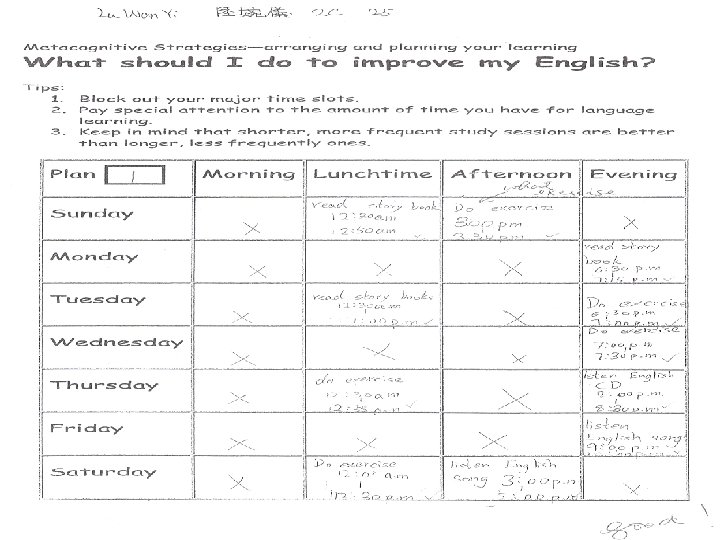 Lu Wan Yi 陸婉儀 2C 25
Metacognitive Strategies—arranging and planning your learning
What should I do to improve my English?
Tips:
1. Block out your major time slots.
2. Pay special attention to the amount of time you have for language
learning.
3. Keep in mind that shorter, more frequent study sessions are better
than longer, less frequently ones.
Plan 1 Morning Lunchtime Afternoon Evening
exercise
Sunday
read story book
12:30am
12:50am
Do exercise
3:00pm
3:30pm
Monday
read story
book
6:30 p.m
7:15 p.m
Tuesday
read story books
12:30am
1:00p.m
Do exercise
6:30p.m
7:00p.m
Wednesday
Do exercise
7:00p.m
7:30p.m
Thursday
do exercise
listen English
CD
8:00p.m
8:30p.m
Friday
listen
English song
9:00p.m
Saturday
Do exercise
12:30p.m
listen English
song 3:00p.m
good!